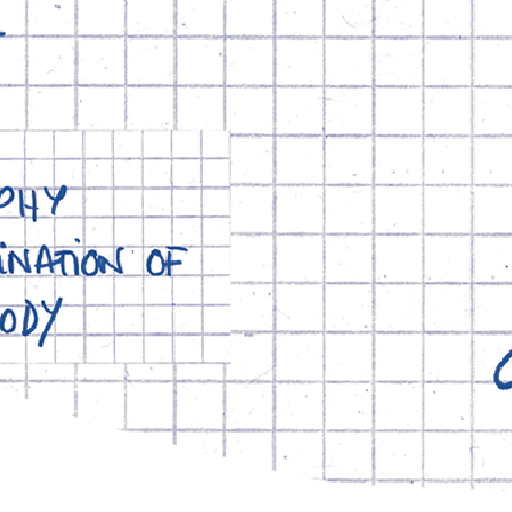 PHY
INATION OF
ODY